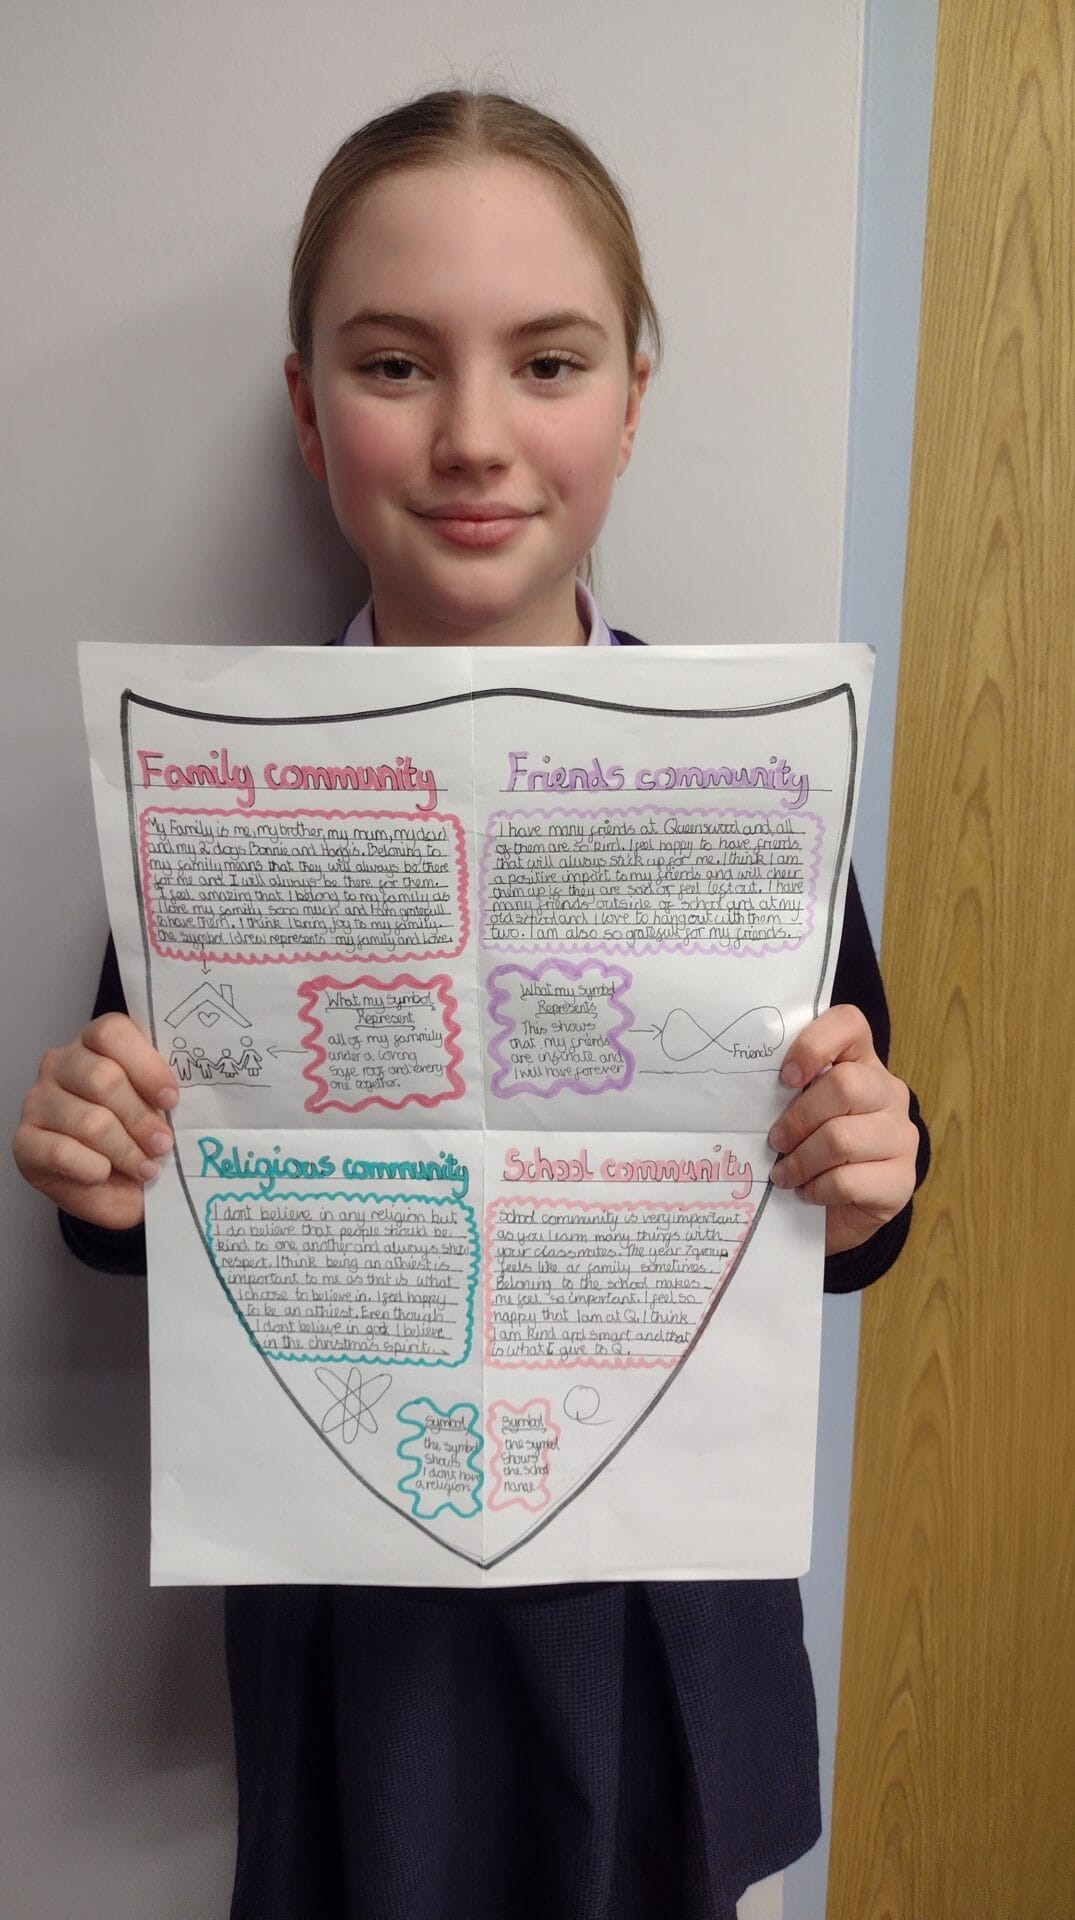 Family community
My Family is me, my brother, my mum, my dad
and my 2 dogs Bonnie and Haggis. Beloning to
my family means that they will always be there
for me and I will always be there for them.
I feel amazing that I belong to my family as
I love my family sooo much and I am gratefull
to have them. I think I bring joy to my family.
the symbol I drew represents my family and love
What my symbol
Represent
all of my fammily
under a loving
safe roof and every
one together.
Friends community
I have many friends at Queenswood and all
of them are so kind. I feel happy to have friends
that will always stick up for me. I think I am
a positive import to my friends and will cheer
them up if they are sad or feel left out. I have
many friends outside of school and at my
old school and I love to hang out with them
two. I am also so gratefull for my friends.
What my symbol
Represents
This shows
that my friends
are infinate and
I will have forever
Friends
Religious community
I dont believe in any religion but
I do believe that people should be
kind to one another and always
respect. I think being an athiest is
important to me as that is what
I choose to believe in. I feel happy
to be an athiest. Even though
I dont believe in god I believe
in the christmas spirit.
Symbol
the symbol
shows
I dont have
a religion
School community
School community is very important
as you learn many things with
your classmates. The year 7 group
feels like a family sometimes.
Beloning to the school makes
me feel so important. I feel so
happy that I am at Q. I think
I am kind and smart and that
is what I give to Q.
Q
Symbol
the symbol
shows
the school
name.